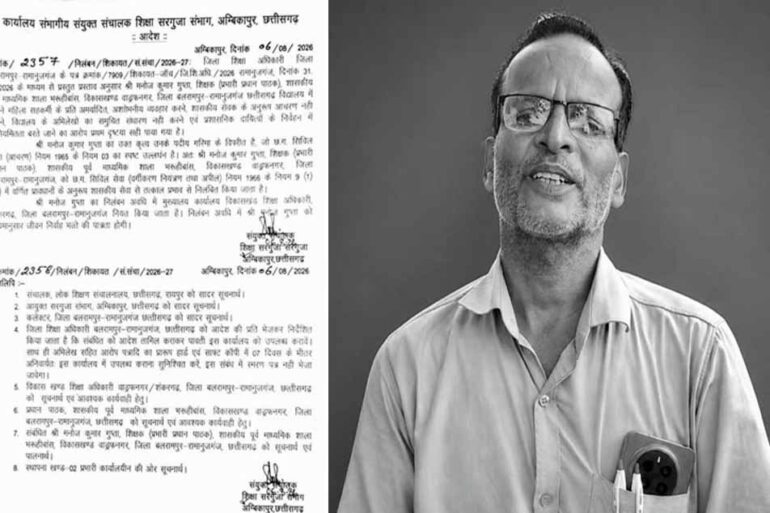 कार्यालय संभागीय संयुक्त संचालक शिक्षा सरगुजा संभाग, अम्बिकापुर, छत्तीसगढ़
:: आदेश ::
अम्बिकापुर, दिनांक 06/08/2026
2357 /निलंबन/शिकायत /सं.संचा/2026-27: जिला शिक्षा अधिकारी जिला
रामपुर-रामानुजगंज के पत्र क्रमांक/7909/शिकायत-जाँच/जि.शि.अधि./2026 रामानुजगंज, दिनांक 31.
2026 के माध्यम से प्रस्तुत प्रस्ताव अनुसार श्री मनोज कुमार गुप्ता, शिक्षक (प्रभारी प्रधान पाठक), शासकीय
माध्यमिक शाला भरूहीबांस, विकासखण्ड वाड्रफनगर, जिला बलरामपुर-रामानुजगंज छत्तीसगढ़ विद्यालय में
महिला सहकर्मी के प्रति अमर्यादित, अशोभनीय व्यवहार करने, शासकीय सेवक के अनुरूप आचरण नही
विद्यालय के अभिलेखो का समुचित संधारण नही करने एवं प्रशासनिक दायित्वों के निर्वहन में
यमितता बरते जाने का आरोप प्रथम दृष्टया सही पाया गया है।
श्री मनोज कुमार गुप्ता का उक्त कृत्य उनके पदीय गरिमा के विपरीत है, जो छ.ग. सिविल
(आचरण) नियम 1965 के नियम 03 का स्पष्ट उल्लंघन है। अतः श्री मनोज कुमार गुप्ता, शिक्षक (प्रभारी
पाठक), शासकीय पूर्व माध्यमिक शाला भरूहीबांस, विकासखण्ड वाड्रफनगर, जिला
रामपुर-रामानुजगंज, को छ.ग. सिविल सेवा (वर्गीकरण नियंत्रण तथा अपील) नियम 1966 के नियम 9 (1)
में वर्णित प्रावधानों के अनुरूप शासकीय सेवा से तत्काल प्रभाव से निलंबित किया जाता है।
श्री मनोज गुप्ता का निलंबन अवधि में मुख्यालय कार्यालय विकासखण्ड शिक्षा अधिकारी,
करगढ़, जिला बलरामपुर-रामानुजगंज नियत किया जाता है। निलंबन अवधि में श्री गुप्ता को
मानुसार जीवन निर्वाह भत्ते की पात्रता होगी।
संयुक्त संचालक
शिक्षा सरगुजा सरगुजा
अम्बिकापुर,छत्तीसगढ़
2358 /निलंबन/शिकायत /सं.संचा/2026-27 अम्बिकापुर, दिनांक 06/08/2026
लिपि :-
1. संचालक, लोक शिक्षण संचालनालय, छत्तीसगढ़, रायपुर को सादर सूचनार्थ।
2. आयुक्त सरगुजा संभाग, अम्बिकापुर, छत्तीसगढ़ को सादर सूचनार्थ।
3. कलेक्टर, जिला बलरामपुर-रामानुजगंज छत्तीसगढ़ को सादर सूचनार्थ।
4. जिला शिक्षा अधिकारी बलरामपुर-रामानुजगंज, छत्तीसगढ़ को आदेश की प्रति भेजकर निर्देशित
किया जाता है कि संबंधित को आदेश तामिल कराकर पावती इस कार्यालय को उपलब्ध करावें।
साथ ही अभिलेख सहित आरोप पत्रादि का प्रारूप हार्ड एवं साफ्ट कॉपी में 07 दिवस के भीतर
अनिवार्यतः इस कार्यालय में उपलब्ध कराना सुनिश्चित करें, इस संबंध में स्मरण पत्र नही भेजा
जावेगा।
5. विकास खण्ड शिक्षा अधिकारी वाड्रफनगर/शंकरगढ़, जिला बलरामपुर-रामानुजगंज, छत्तीसगढ़
को सूचनार्थ एवं आवश्यक कार्यवाही हेतु।
6. प्रधान पाठक, शासकीय पूर्व माध्यमिक शाला भरूहीबांस, विकासखण्ड वाड्रफनगर, जिला
बलरामपुर-रामानुजगंज, छत्तीसगढ़ को सूचनार्थ एवं आवश्यक कार्यवाही हेतु।
7. संबंधित श्री मनोज कुमार गुप्ता, शिक्षक (प्रभारी प्रधान पाठक), शासकीय पूर्व माध्यमिक शाला
भरूहीबांस, विकासखण्ड वाड्रफनगर, जिला बलरामपुर-रामानुजगंज, छत्तीसगढ़ को सूचनार्थ एवं
पालनार्थ।
8. स्थापना खण्ड-02 प्रभारी कार्यालयीन की ओर सूचनार्थ।
संयुक्त संचालक
शिक्षा सरगुजा संभाग
अम्बिकापुर,छत्तीसगढ़